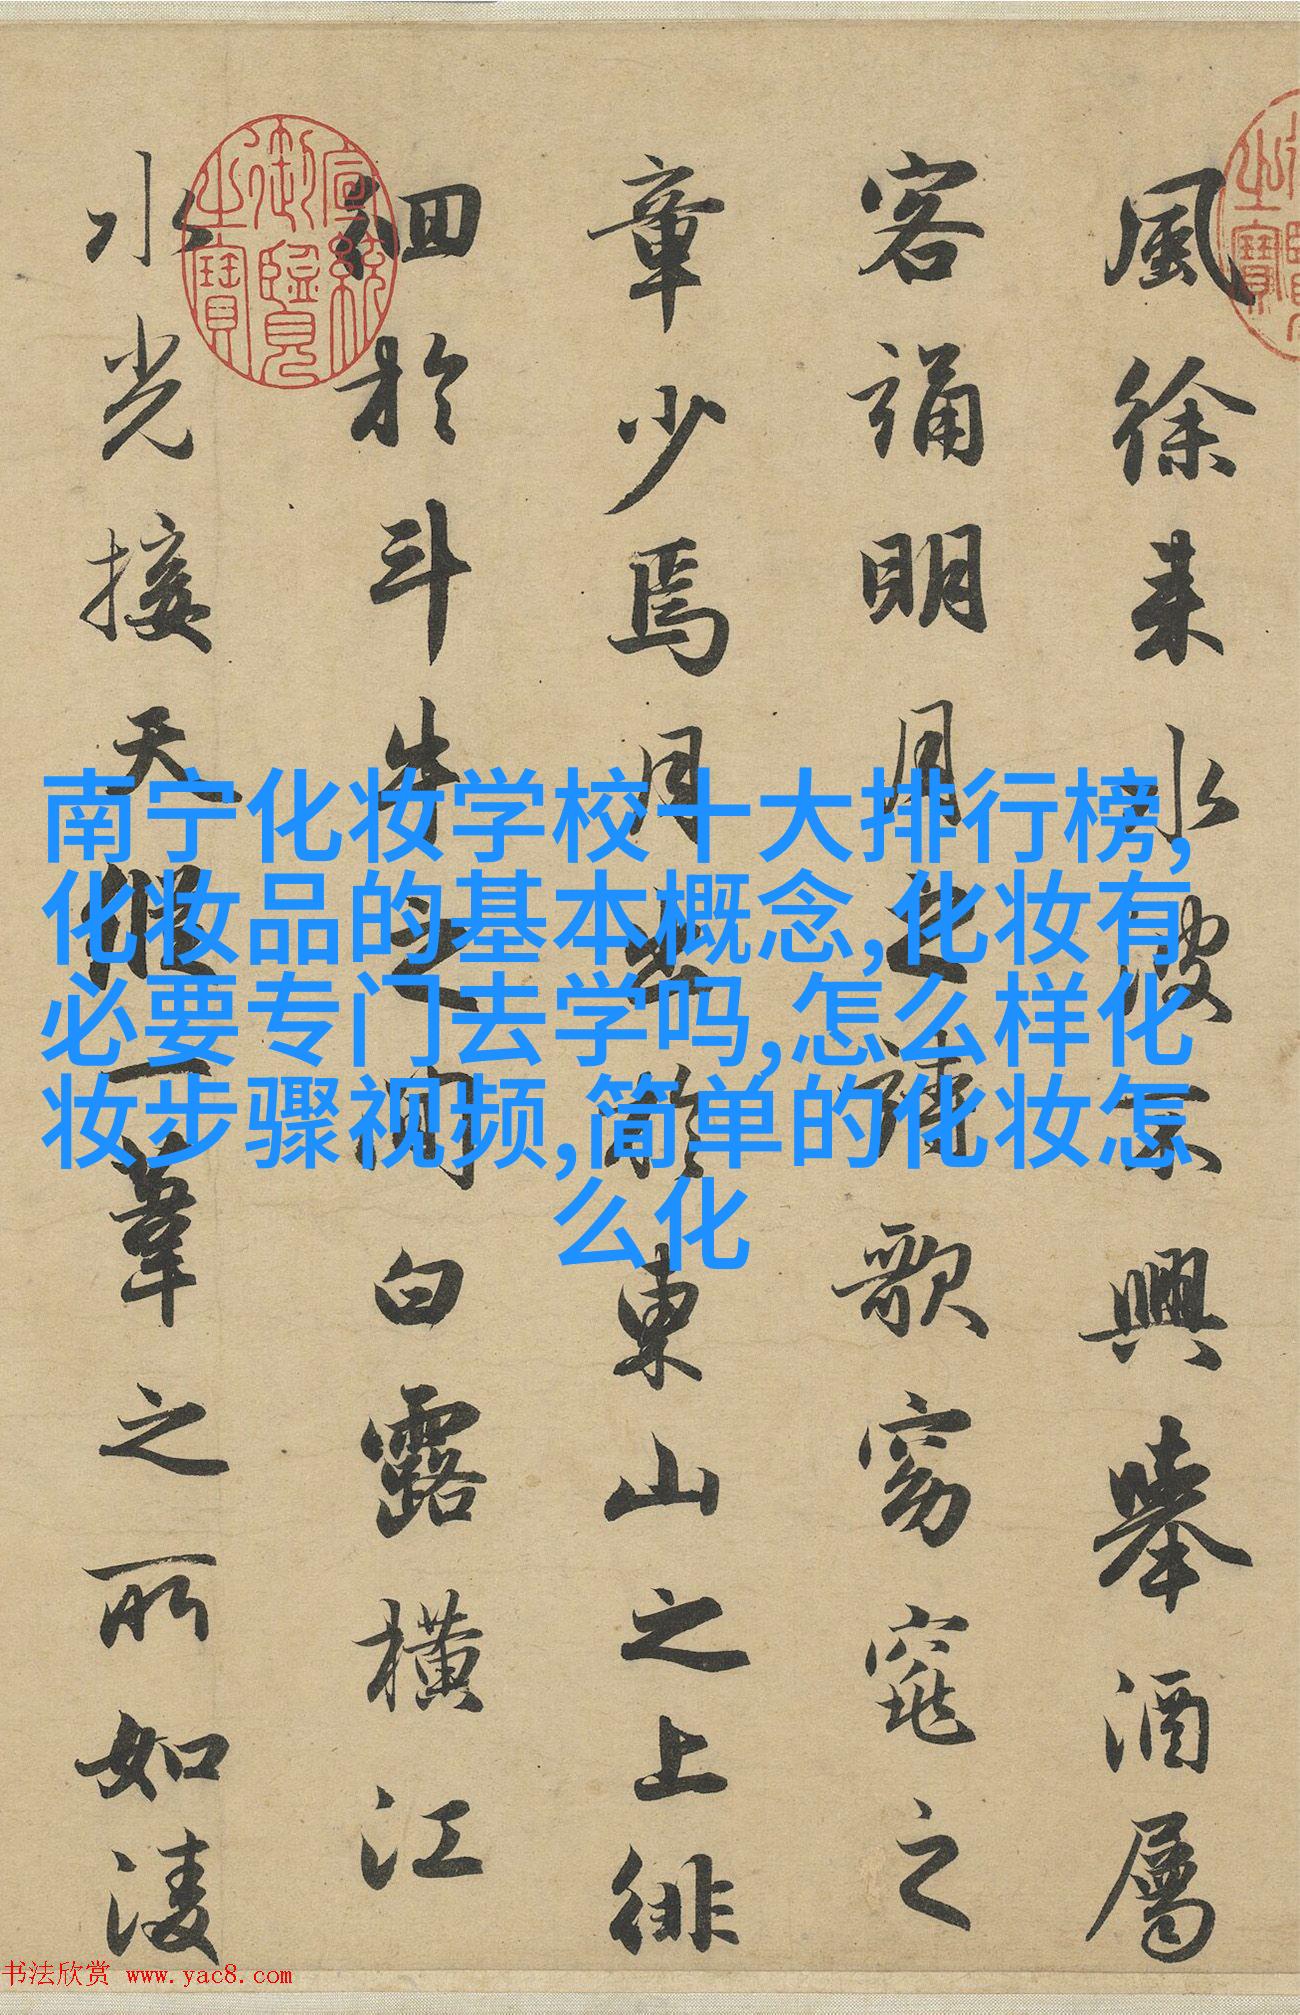 風徐来水波不興舉酒屬
客誦明月之詩歌窈窕之
章少焉月出於東山之上徘
徊於斗牛之間白露橫江
水光接天縱一葦之所如淩
宣統御覽之寶
南宁化妆学校十大排行榜,
化妆品的基本概念,化妆有
必要专门去学吗,怎么样化
妆步骤视频,简单的化妆怎
么化
书法欣赏 www.yac8.com